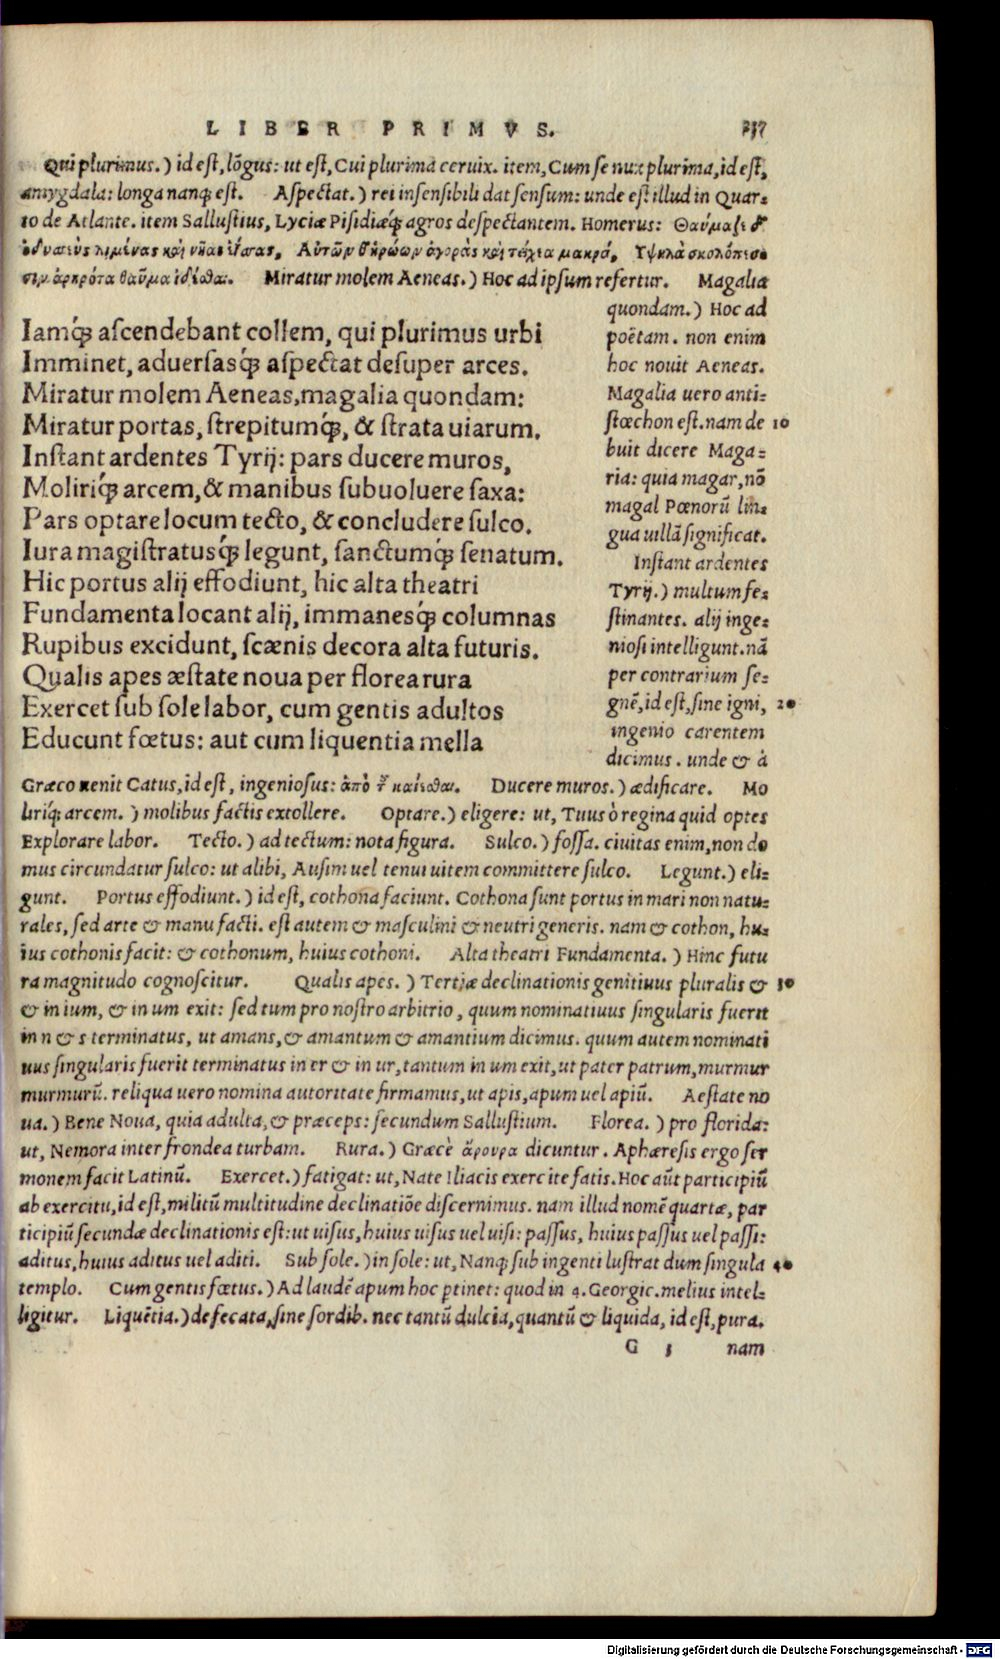 LIBER PRIMVS. 237
Qui plurimus.) id est, lõgus: ut est, Cui plurima ceruix. item, Cum se nux plurima, id est,
amygdala: longa nanq; est. Aspectat.) rei insensibili dat sensum: unde est illud in Quar-
to de Atlante. item Sallustius, Lyciæ Pisidiæq́; agros despectantem. Homerus: Θαύμαζε δ'
ὀδυσεὺς λιμένας καὶ νῆας ἐΐσας, Αὐτῶν θ' ἡρώων ἀγορὰς καὶ τείχεα μακρά, Ὑψηλὰ σκολόπεσσι
σιν ἀρηρότα θαῦμα ἰδέσθαι. Miratur molem Aeneas.) Hoc ad ipsum refertur. Magalia
quondam.) Hoc ad
poëtam. non enim
hoc nouit Aeneas.
Magalia uero anti-
stœchon est. nam de 10
buit dicere Maga-
ria: quia magar, nõ
magal Pœnorũ lin-
gua uillã significat.
Instant ardentes
Tyrij.) multum fe-
stinantes. alij inge-
niosi intelligunt. nã
per contrarium se-
gnẽ, id est, sine igni, 20
ingenio carentem
dicimus. unde & à
Iamq́; ascendebant collem, qui plurimus urbi
Imminet, aduersasq́; aspectat desuper arces.
Miratur molem Aeneas, magalia quondam:
Miratur portas, strepitumq́;, & strata uiarum.
Instant ardentes Tyrij: pars ducere muros,
Moliriq́; arcem, & manibus subuoluere saxa:
Pars optare locum tecto, & concludere sulco.
Iura magistratusq́; legunt, sanctumq́; senatum.
Hic portus alij effodiunt, hic alta theatri
Fundamenta locant alij, immanesq́; columnas
Rupibus excidunt, scænis decora alta futuris.
Qualis apes æstate noua per florea rura
Exercet sub sole labor, cum gentis adultos
Educunt fœtus: aut cum liquentia mella
Græco uenit Catus, id est, ingeniosus: ἀπὸ τ͂ καίεσθαι. Ducere muros.) ædificare. Mo
liriq́; arcem.) molibus factis extollere. Optare.) eligere: ut, Tuus ò regina quid optes
Explorare labor. Tecto.) ad tectum: nota figura. Sulco.) fossa. ciuitas enim, non do
mus circundatur sulco: ut alibi, Ausim uel tenui uitem committere sulco. Legunt.) eli-
gunt. Portus effodiunt.) id est, cothona faciunt. Cothona sunt portus in mari non natu-
rales, sed arte & manu facti. est autem & masculini & neutri generis. nam & cothon, hu-
ius cothonis facit: & cothonum, huius cothoni. Alta theatri Fundamenta.) Hinc futu
ra magnitudo cognoscitur. Qualis apes.) Tertiæ declinationis genitiuus pluralis & 30
& in ium, & in um exit: sed tum pro nostro arbitrio, quum nominatiuus singularis fuerit
in n & s terminatus, ut amans, & amantum & amantium dicimus. quum autem nominati
uus singularis fuerit terminatus in er & in ur, tantum in um exit, ut pater patrum, murmur
murmurũ. reliqua uero nomina autoritate firmamus, ut apis, apum uel apiũ. Aestate no
ua.) Bene Noua, quia adulta, & præceps: secundum Sallustium. Florea.) pro florida:
ut, Nemora inter frondea turbam. Rura.) Græcè ἄρουρα dicuntur. Aphæresis ergo ser
monem facit Latinũ. Exercet.) fatigat: ut, Nate Iliacis exercite fatis. Hoc aũt participiũ
ab exercitu, id est, militũ multitudine declinatiõe discernimus. nam illud nomẽ quartæ, par
ticipiũ secundæ declinationis est: ut uisus, huius uisus uel uisi: passus, huius passus uel passi:
aditus, huius aditus uel aditi. Sub sole.) in sole: ut, Nanq; sub ingenti lustrat dum singula 40
templo. Cum gentis fœtus.) Ad laudẽ apum hoc ptinet: quod in 4. Georgic. melius intel-
ligitur. Liquẽtia.) defecata, sine sordib. nec tantũ dulcia, quantũ & liquida, id est, pura.
G 3 nam
Digitalisierung gefördert durch die Deutsche Forschungsgemeinschaft - DFG